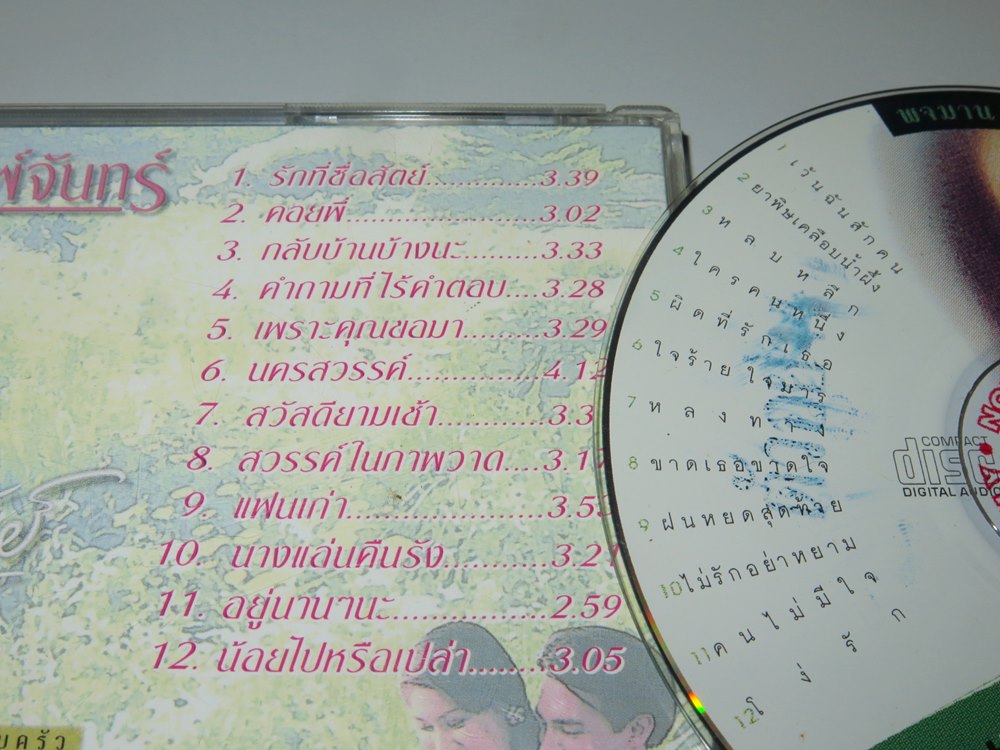 พ์จันทร์
1. รักที่ซื่อสัตย์.............3.39
2. คอยพี่......................3.02
3. กลับบ้านบ้างนะ.........3.33
4. คำถามที่ไร้คำตอบ....3.28
5. เพราะคุณขอมา........3.29
6. นครสวรรค์..............4.12
7. สวัสดียามเช้า............3.3
8. สวรรค์ในภาพวาด....3.17
9. แฟนเก่า....................3.53
10. นางแล่นคืนรัง..........3.21
11. อยู่นานๆนะ.............2.59
12. น้อยไปหรือเปล่า.......3.05
พจมาน
1 เว้นฉันสักคน
2 ยาพิษเคลือบน้ำผึ้ง
3 หลบหลีก
4 ใครคนหนึ่ง
5 ผิดที่รักเธอ
6 ใจร้ายใจมาร
7 หลงทาง
8 ขาดเธอขาดใจ
9 ฝนหยดสุดท้าย
10 ไม่รักอย่าหยาม
11 คนไม่มีใจ
12 โง่รัก
COMPACT
disc
DIGITAL AUDIO